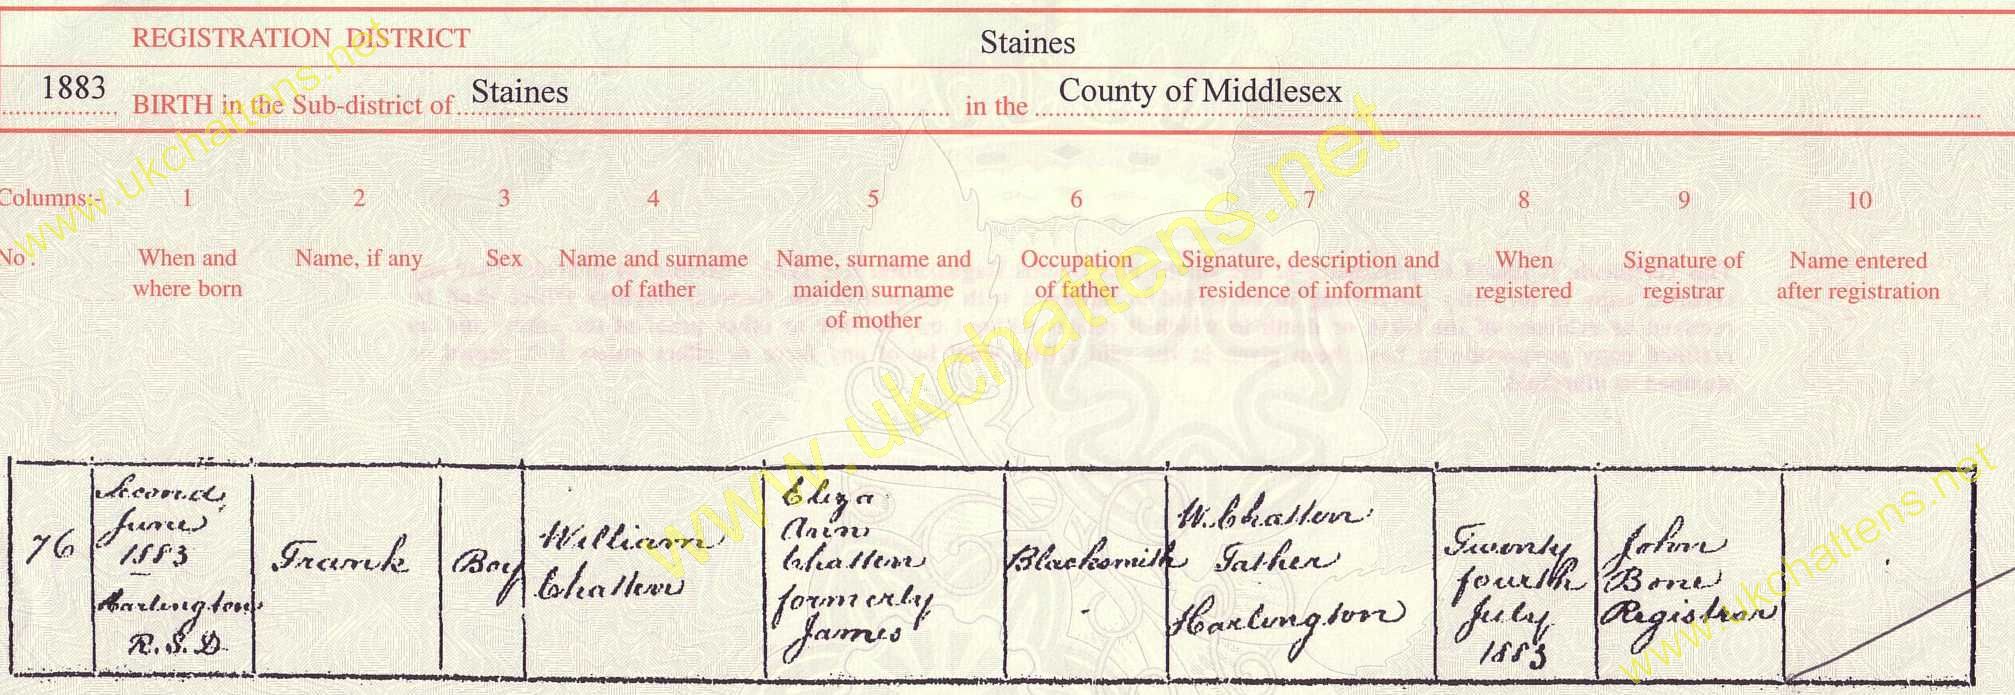 REGISTRATION DISTRICT Staines
1883 BIRTH in the Sub-district of Staines in the County of Middlesex
Columns:- 1 2 3 4 5 6 7 8 9 10
No. When and where born Name, if any Sex Name and surname of father Name, surname and maiden surname of mother Occupation of father Signature, description and residence of informant When registered Signature of registrar Name entered after registration
76
Second
June
1883
Harlington
R.S.D
Frank
Boy
William
Chatten
Eliza
Ann
Chatten
formerly
James
Blacksmith
W. Chatten
Father
Harlington
Twenty
fourth
July
1883
John
Bone
Registrar
www.ukchattens.net
www.ukchattens.net
www.ukchattens.net